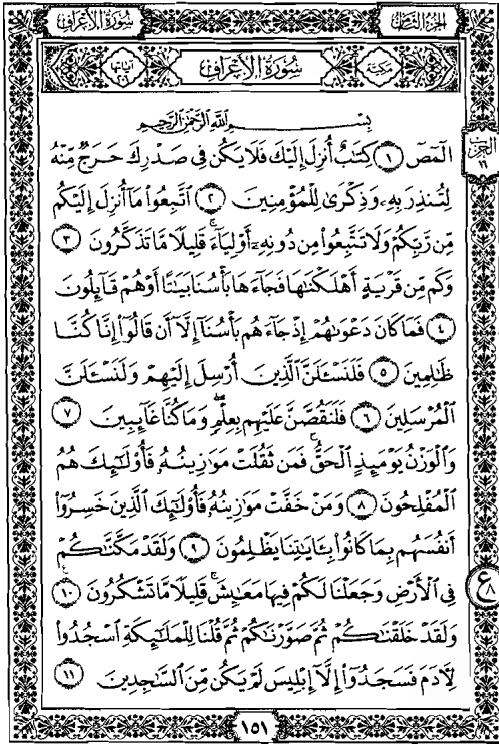 سُورَةُ الأَعْرَافِ
الجُزْءُ الثَّامِنُ
مَكِّيَّة
سُورَةُ الأَعْرَافِ
آيَاتُهَا ٢٠٦
الحِزْب ١٦
بِسْمِ ٱللَّهِ ٱلرَّحْمَٰنِ ٱلرَّحِيمِ
الٓمٓصٓ ١ كِتَٰبٌ أُنزِلَ إِلَيْكَ فَلَا يَكُن فِى صَدْرِكَ حَرَجٌ مِّنْهُ
لِتُنذِرَ بِهِۦ وَذِكْرَىٰ لِلْمُؤْمِنِينَ ٢ ٱتَّبِعُوا۟ مَآ أُنزِلَ إِلَيْكُم
مِّن رَّبِّكُمْ وَلَا تَتَّبِعُوا۟ مِن دُونِهِۦٓ أَوْلِيَآءَ ۗ قَلِيلًا مَّا تَذَكَّرُونَ ٣
وَكَم مِّن قَرْيَةٍ أَهْلَكْنَٰهَا فَجَآءَهَا بَأْسُنَا بَيَٰتًا أَوْ هُمْ قَآئِلُونَ
٤ فَمَا كَانَ دَعْوَىٰهُمْ إِذْ جَآءَهُم بَأْسُنَآ إِلَّآ أَن قَالُوٓا۟ إِنَّا كُنَّا
ظَٰلِمِينَ ٥ فَلَنَسْـَٔلَنَّ ٱلَّذِينَ أُرْسِلَ إِلَيْهِمْ وَلَنَسْـَٔلَنَّ
ٱلْمُرْسَلِينَ ٦ فَلَنَقُصَّنَّ عَلَيْهِم بِعِلْمٍ ۖ وَمَا كُنَّا غَآئِبِينَ ٧
وَٱلْوَزْنُ يَوْمَئِذٍ ٱلْحَقُّ ۚ فَمَن ثَقُلَتْ مَوَٰزِينُهُۥ فَأُو۟لَٰٓئِكَ هُمُ
ٱلْمُفْلِحُونَ ٨ وَمَنْ خَفَّتْ مَوَٰزِينُهُۥ فَأُو۟لَٰٓئِكَ ٱلَّذِينَ خَسِرُوٓا۟
أَنفُسَهُم بِمَا كَانُوا۟ بِـَٔايَٰتِنَا يَظْلِمُونَ ٩ وَلَقَدْ مَكَّنَّٰكُمْ
فِى ٱلْأَرْضِ وَجَعَلْنَا لَكُمْ فِيهَا مَعَٰيِشَ ۗ قَلِيلًا مَّا تَشْكُرُونَ ١٠
ع ٨
وَلَقَدْ خَلَقْنَٰكُمْ ثُمَّ صَوَّرْنَٰكُمْ ثُمَّ قُلْنَا لِلْمَلَٰٓئِكَةِ ٱسْجُدُوا۟
لِـَٔادَمَ فَسَجَدُوٓا۟ إِلَّآ إِبْلِيسَ لَمْ يَكُن مِّنَ ٱلسَّٰجِدِينَ ١١
١٥١